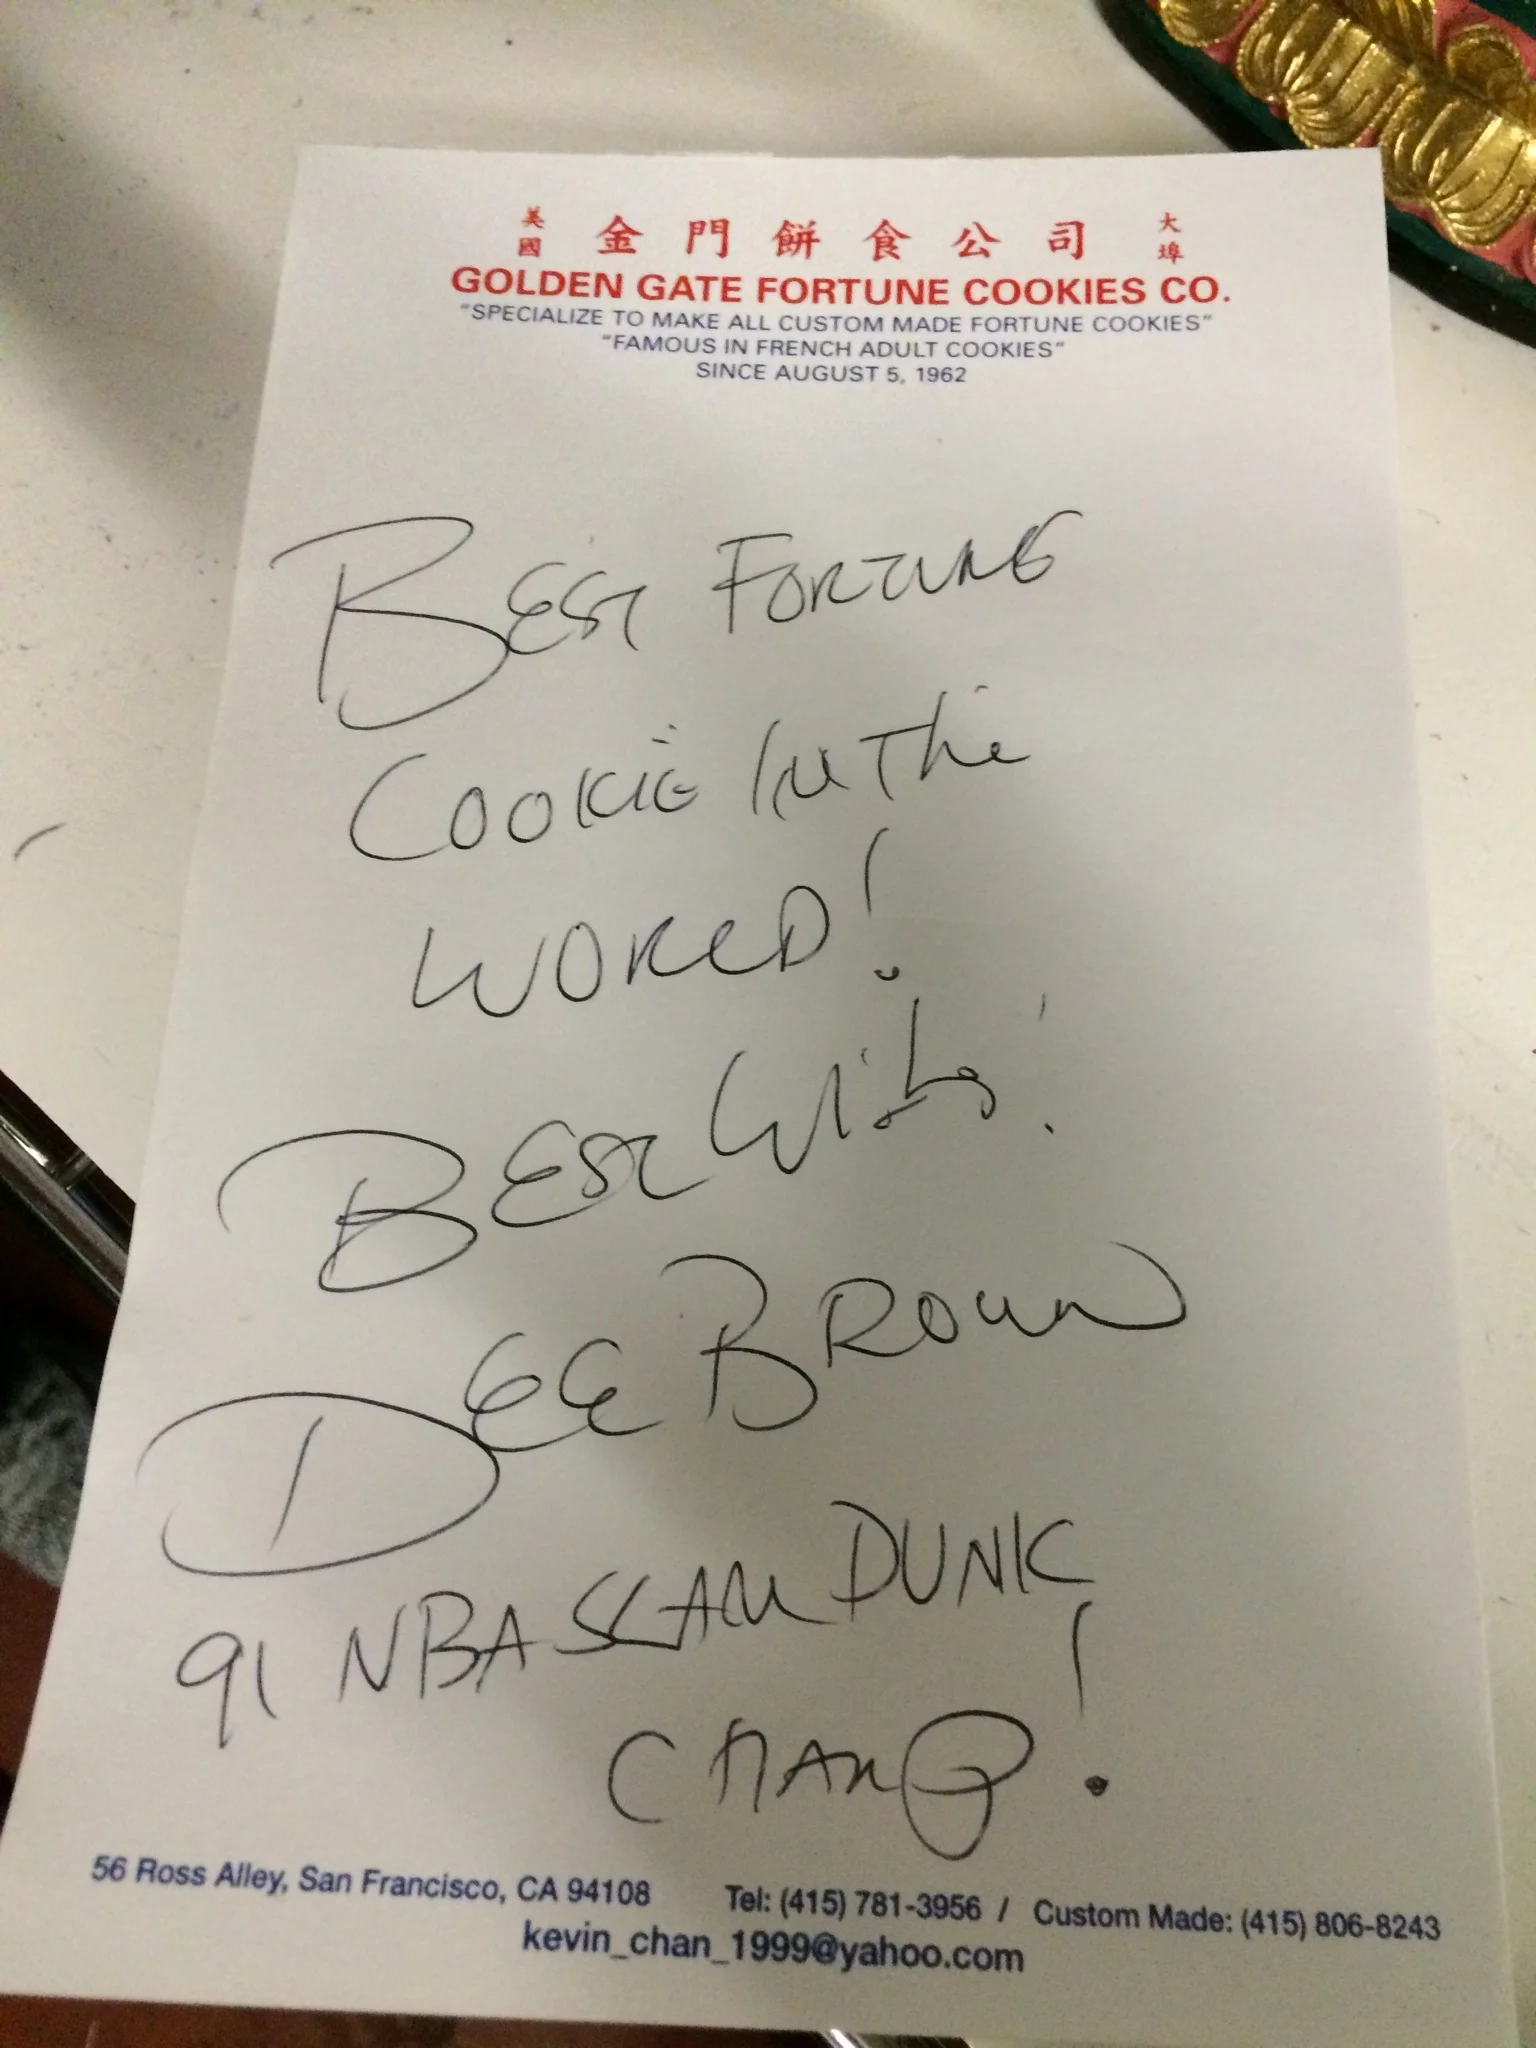 美國 金門餅食公司 大埠
GOLDEN GATE FORTUNE COOKIES CO.
"SPECIALIZE TO MAKE ALL CUSTOM MADE FORTUNE COOKIES"
"FAMOUS IN FRENCH ADULT COOKIES"
SINCE AUGUST 5, 1962
BEST FORTUNE
COOKIE IN The
WORLD!
BEST Wishes!
DEE BROWN
91 NBA SLAM DUNK
CHAMP!
56 Ross Alley, San Francisco, CA 94108 Tel: (415) 781-3956 / Custom Made: (415) 806-8243
kevin_chan_1999@yahoo.com